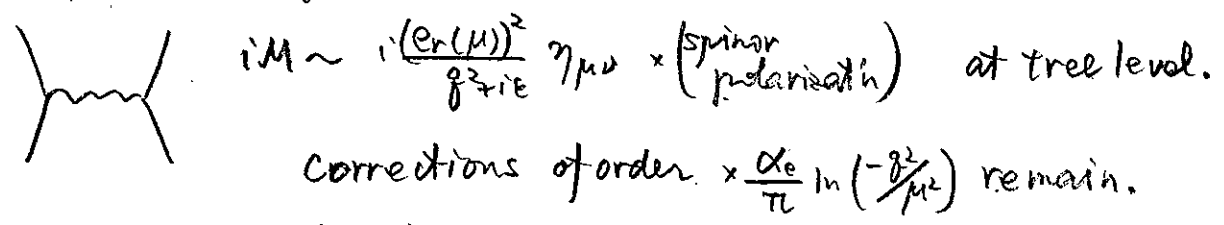 iM ~ i(e_r(μ))² / (q²+iε) η_μν × (spinor polarizat'n) at tree level.
corrections of order × α_e/π ln(-q²/μ²) remain.